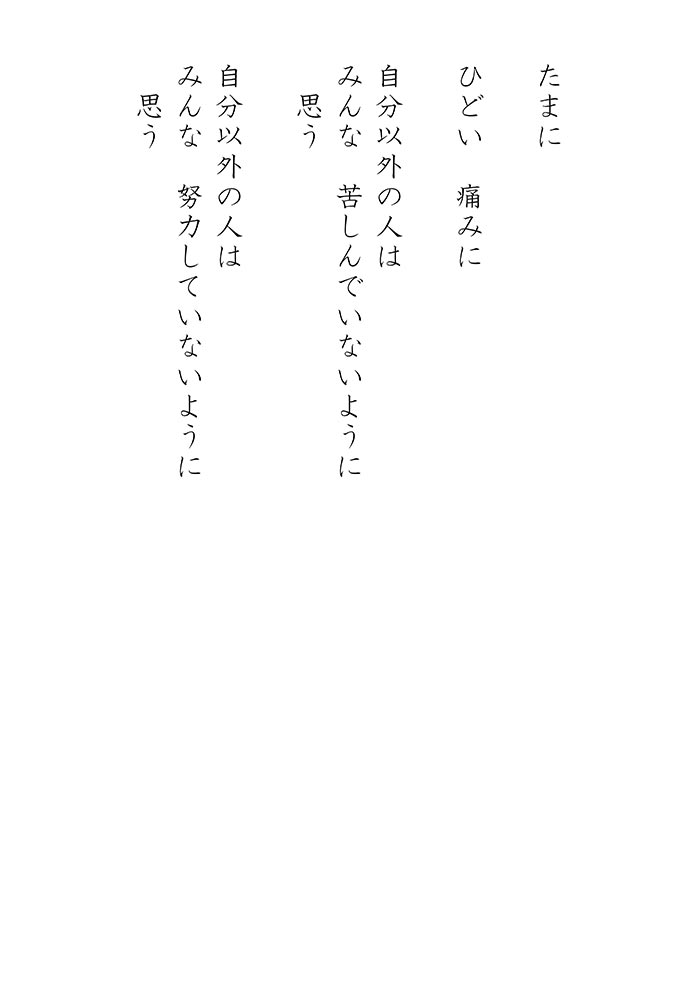 たまに
ひどい　痛みに
自分以外の人は
みんな　苦しんでいないように
思う
自分以外の人は
みんな　努力していないように
思う